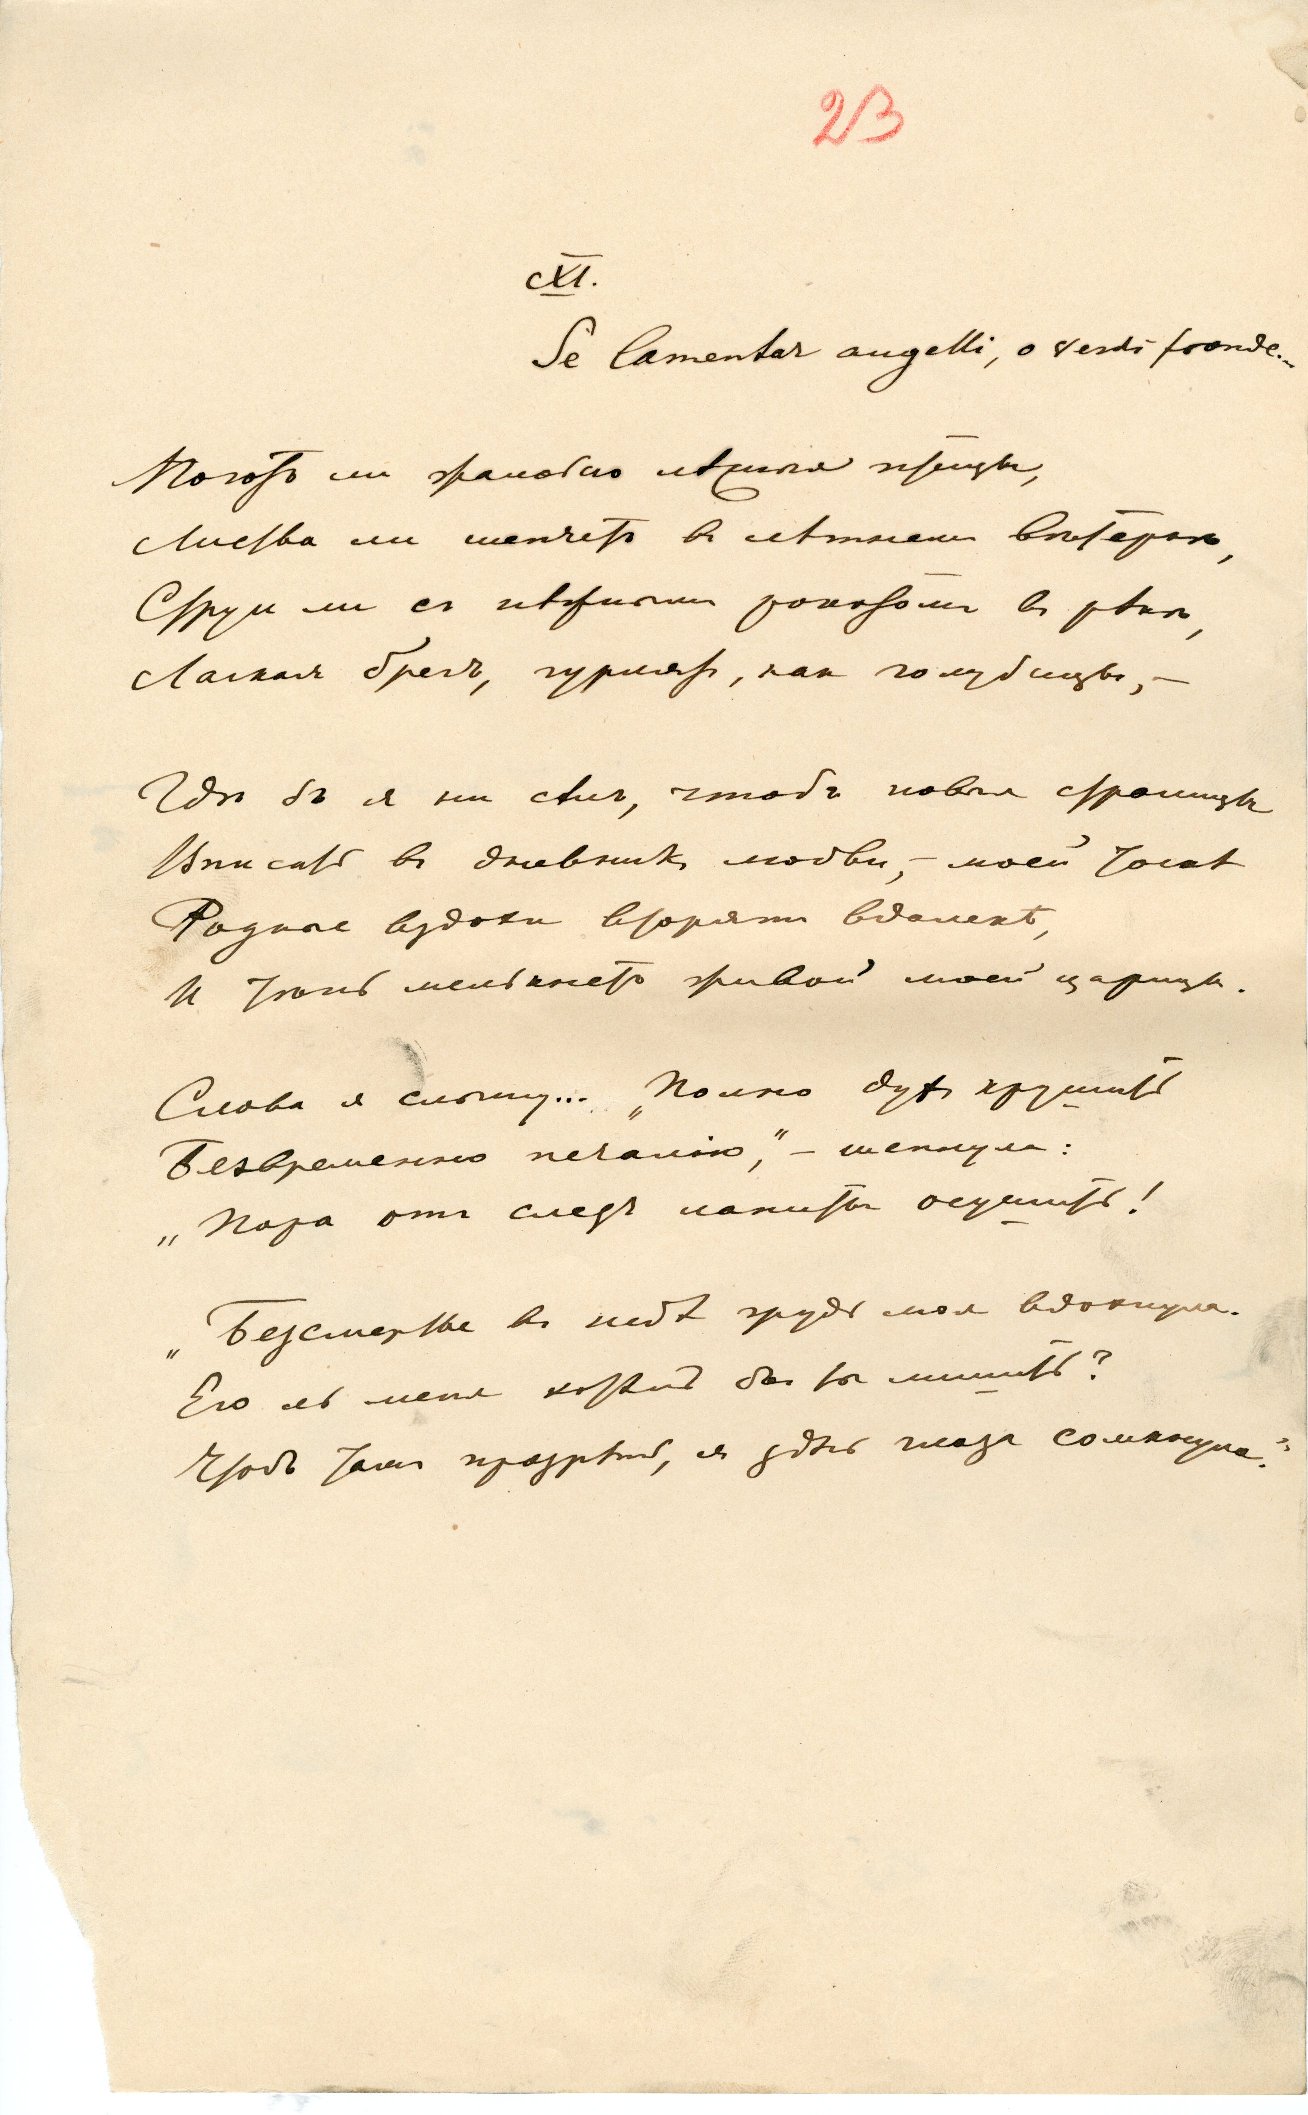 23
CXI.
Se lamentar augelli, o verdi fronde...
Поютъ ли жалобно лѣсныя птицы,
Листва ли шепчетъ въ лѣтнемъ вѣтеркѣ,
Струи ли съ нѣжнымъ рокотомъ въ рѣкѣ,
Лаская брегъ, гурлятъ, какъ голубицы, –
Гдѣ бъ я ни сѣлъ, чтобъ новыя страницы
Вписать въ дневникъ любви, – моей тоскѣ
Родные вздохи вторятъ вдалекѣ,
И тѣнь мелькнетъ живой моей царицы.
Слова я слышу... „Полно духъ крушить
Безвременно печалію," – шепнула:
„Пора отъ слезъ ланиты осушить!
„Безсмертье въ небѣ грудь моя вдохнула.
Его ль меня хотѣлъ бы ты лишить?
Чтобъ тамъ прозрѣть, я здѣсь глаза сомкнула."